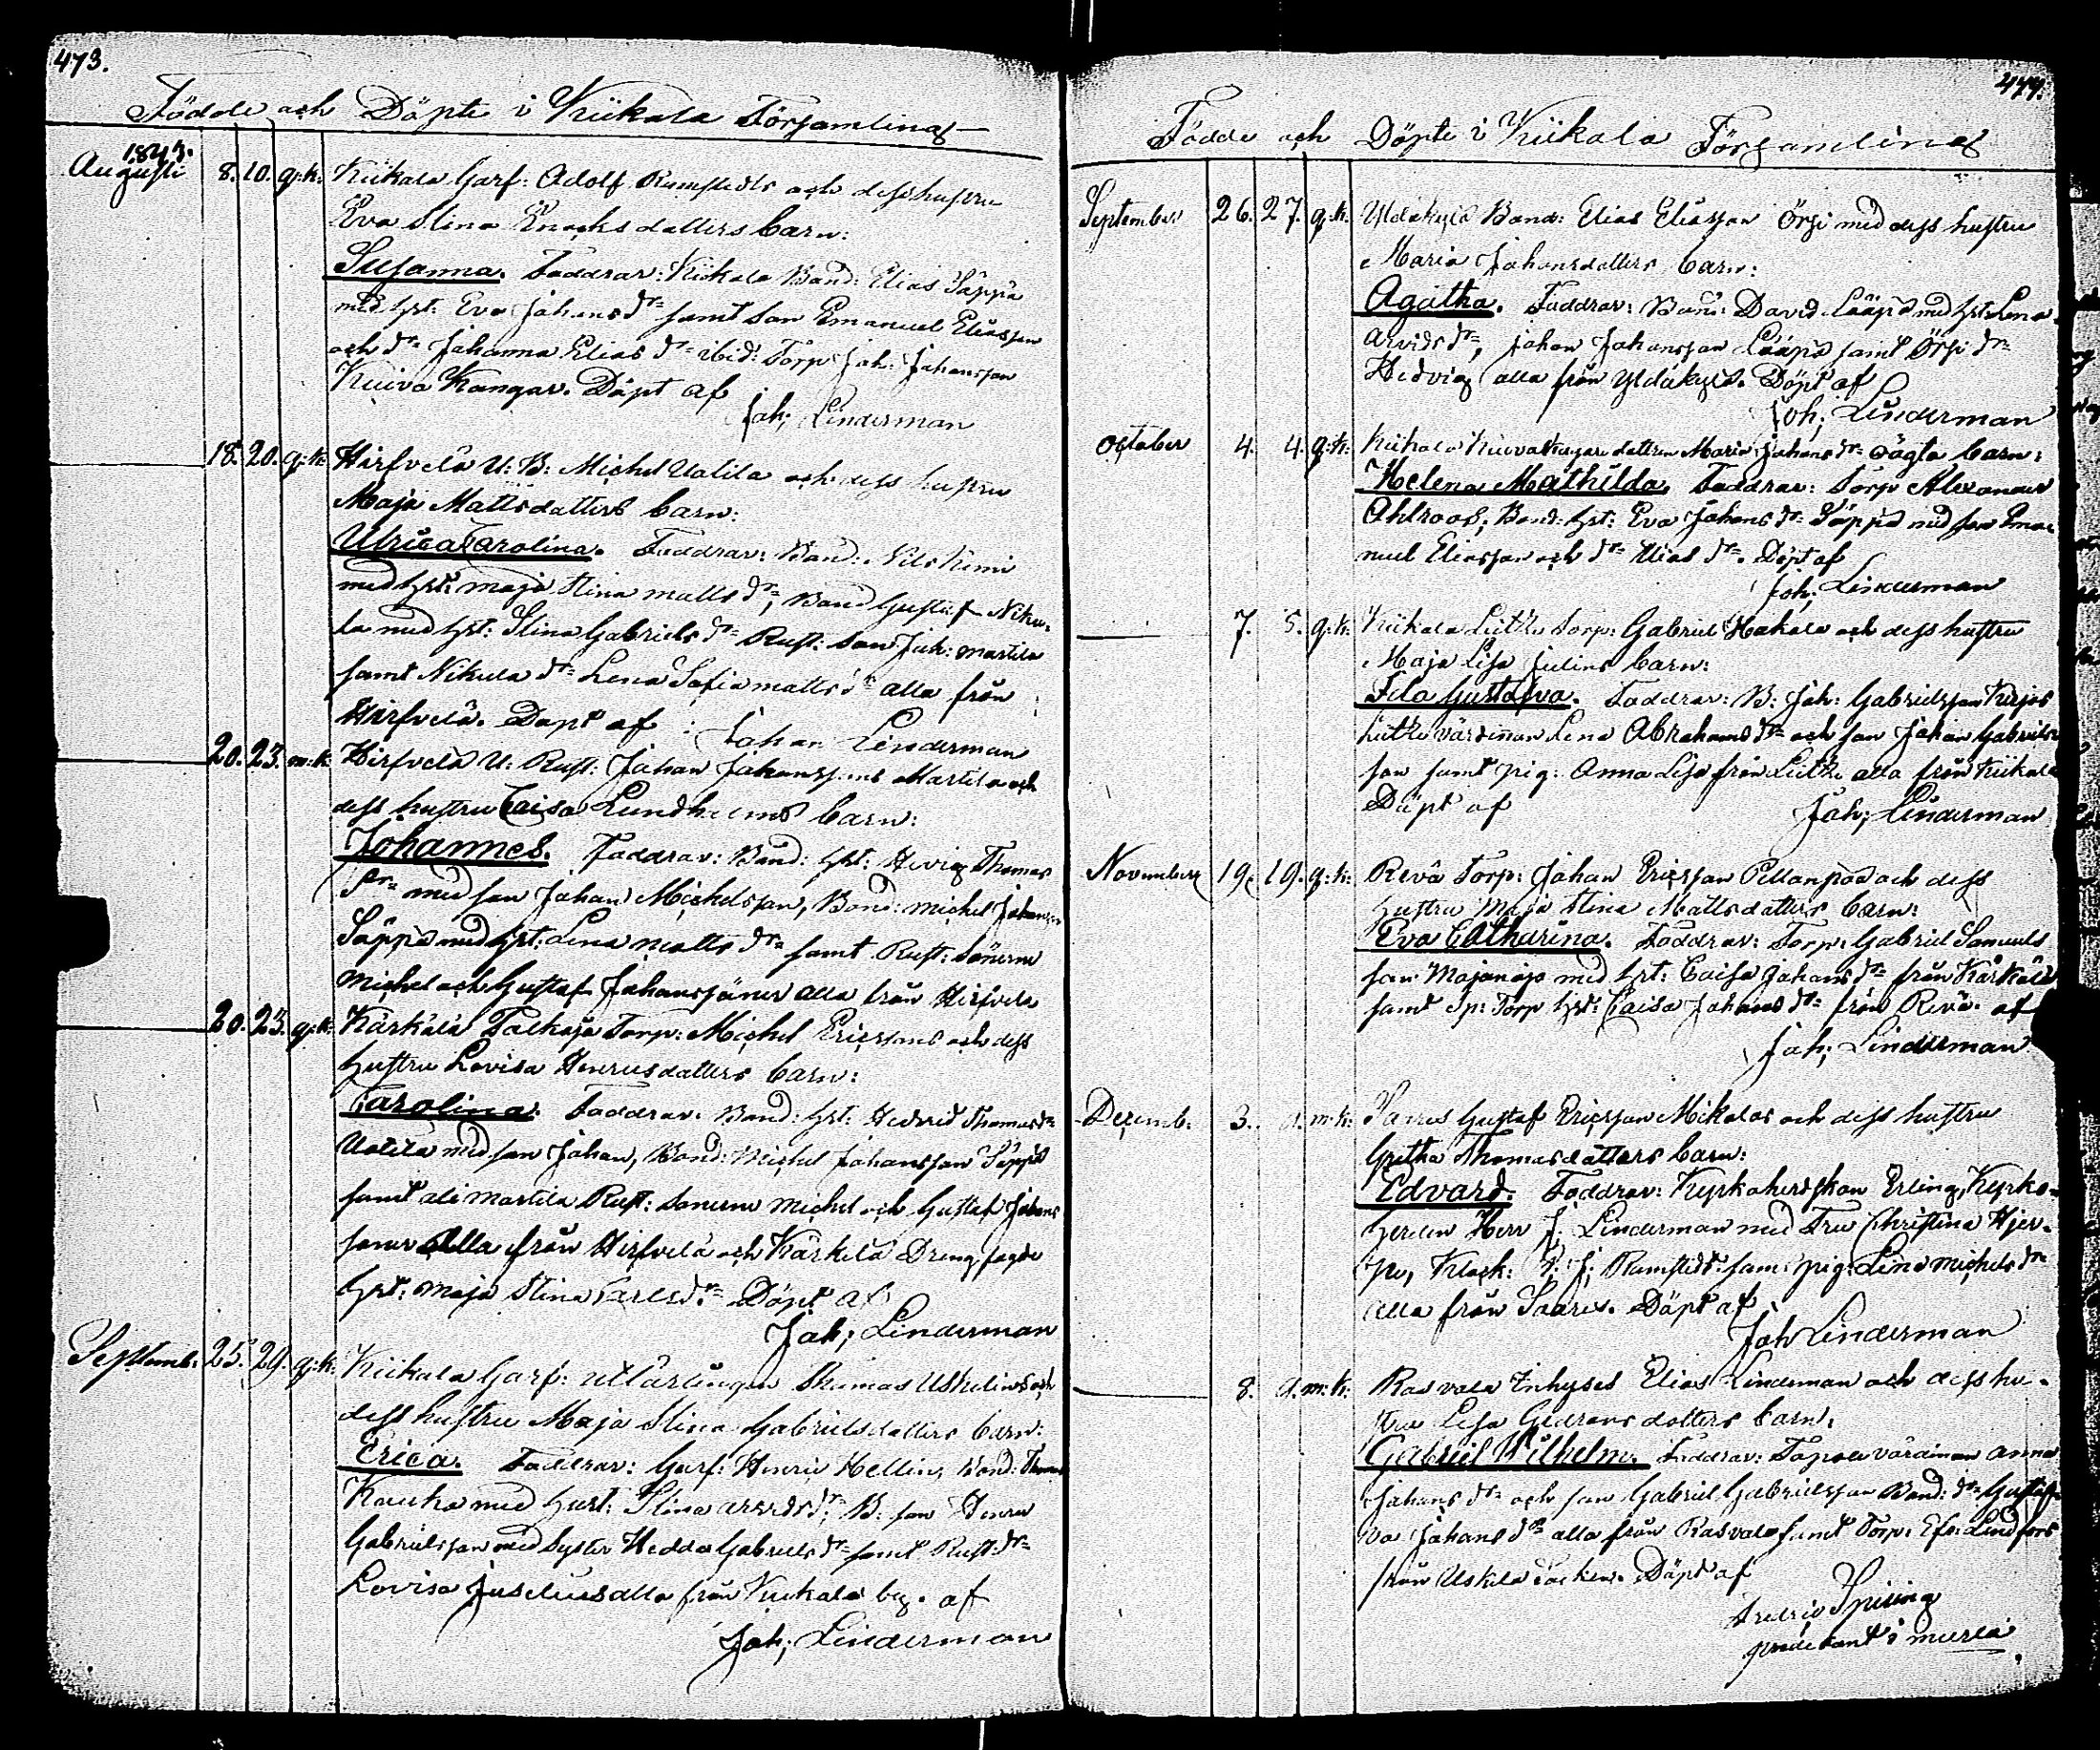 473.
Födde och Döpte i Kiikala Församling
1843.
Augusti 8. 10. q:k: Kiikala Garf: Adolf Ramstedts och dess hustru
Eva Stina Enochsdotters barn:
Susanna. Faddrar: Kiikala Bond: Elias Säppä
med hst: Eva Johans dr samt son Emanuel Eliasson
och dr Johanna Elias dr ibid: Torp Joh: Johansson
Kuiva Kangar. Döpt af
Joh; Linderman
18. 20. q:k: Hirsvelä U: B: Michel Uotila och dess hustru
Maja Mattsdotters barn:
Ulrica Carolina. Faddrar: Bond: Nils Heimi
med hst: Maja Stina Matts dr, Bond Gustaf Niku-
la med hst: Stina Gabriels dr Rust: son Joh: Martila
samt Nikula dr Lena Sofia Matts dr alla från
Hirsvelä. Döpt af Johan Linderman
20. 23. m:k: Hirsvelä U: Rust: Johan Johanssons Martila och
dess hustru Caisa Lundholms barn:
Johannes. Faddrar: Bond: hst: Hevig Thomas
dr med son Johan Michelsson, Bond: Michel Johansson
Säppä med hst: Lena Matts dr samt Rust: sönerne
Michel och Gustaf Johanssöner alla från Hirsvelä
20. 23. q:k: Kärkälä Torp: Michel Ericssons och dess
hustru Lovisa Henricsdotters barn:
Carolina. Faddrar: Bond: hst: Hedvid Thomas dr
Uotila med son Johan, Bond: Michel Johansson Säppä
samt Martila Rust: sönerne Michel och Gustaf Johans
söner Alla från Hirsvelä och Kärkelä
hst: Maja Stina Carls dr Döpt af
Joh; Linderman
Septemb: 25. 29. q:k: Kiikala Garf: utlärlingen Thomas Uskelins och
dess hustru Maja Stina Gabrielsdotters barn:
Erica. Faddrar: Garf: Henric Hellin, Bond: Thomas
Kauka med hust: Stina Arvids dr, B: son Henric
Gabrielsson med syster Hedda Gabriels dr samt Rust: dr
Lovisa Juselius alla från Kiikala by. af
Joh; Linderman
474.
Födde och Döpte i Kiikala Församling
September 26. 27. q:k: Yldäkylä Bond: Elias Eliasson Örsi med dess hustru
Maria Johansdotters barn:
Agatha. Faddrar: Bond: David Lääpä med hst: Lena
Arvids dr, Johan Johansson Lääpä samt Örsi dr
Hedvig alla från Yldäkylä. Döpt af
Joh; Linderman
October 4. 4. q:k: Kiikala Kuivakangare dottren Maria Johans dr oägta barn:
Helena Mathilda. Faddrar: Torp Alexander
Ahlroos, Bond: hst: Eva Johans dr Säppä med son Ema-
nuel Eliasson och dr Elias dr. Döpt af
Joh; Linderman
7. 5. q:k: Kiikala Torp: Gabriel Hakala och dess hustru
Maja Lisa Julins barn:
Ida Gustafva. Faddrar: B: Joh: Gabrielsson
värdinnan Lena Abrahams dr och son Johan Gabriels
son samt pig: Anna Lisa från alla från Kiikala
Döpt af Joh; Linderman
November 19. 19. q:k: Revä Torp: Johan Ericsson Pellonpää och dess
hustru Maja Stina Mattsdotters barn:
Eva Catharina. Faddrar: Torp: Gabriel Samuels
son Majanoja med hst: Caisa Johans dr från Kärkälä
samt Torp hst: Caisa Johans dr från Revä. af
Joh; Linderman
Decemb: 3. m:k: Saares Gustaf Ericsson Mikolas och dess hustru
Gretha Thomasdotters barn:
Edvard. Faddrar: Kyrkoherdskan Erling, Kyrko-
herden Herr J; Linderman med Fru Christina Hjer-
pe, Klock: J: Ramstedt samt pig: Lena Michels dr
alla från Saares. Döpt af
Joh Linderman
8. m:k: Rasvala Inhyses Elias Lindeman och dess hu-
stru Lisa dotters barn,
Gabriel Wilhelm. Faddrar: värdinnan Anna
Johans dr och son Gabriel Gabrielsson Bond: dr Gustaf-
va Johans dr alla från Rasvala samt Torp: Lindfors
från Uskela Socken. Döpt af
Fredric Spiring
predikant i Muurla